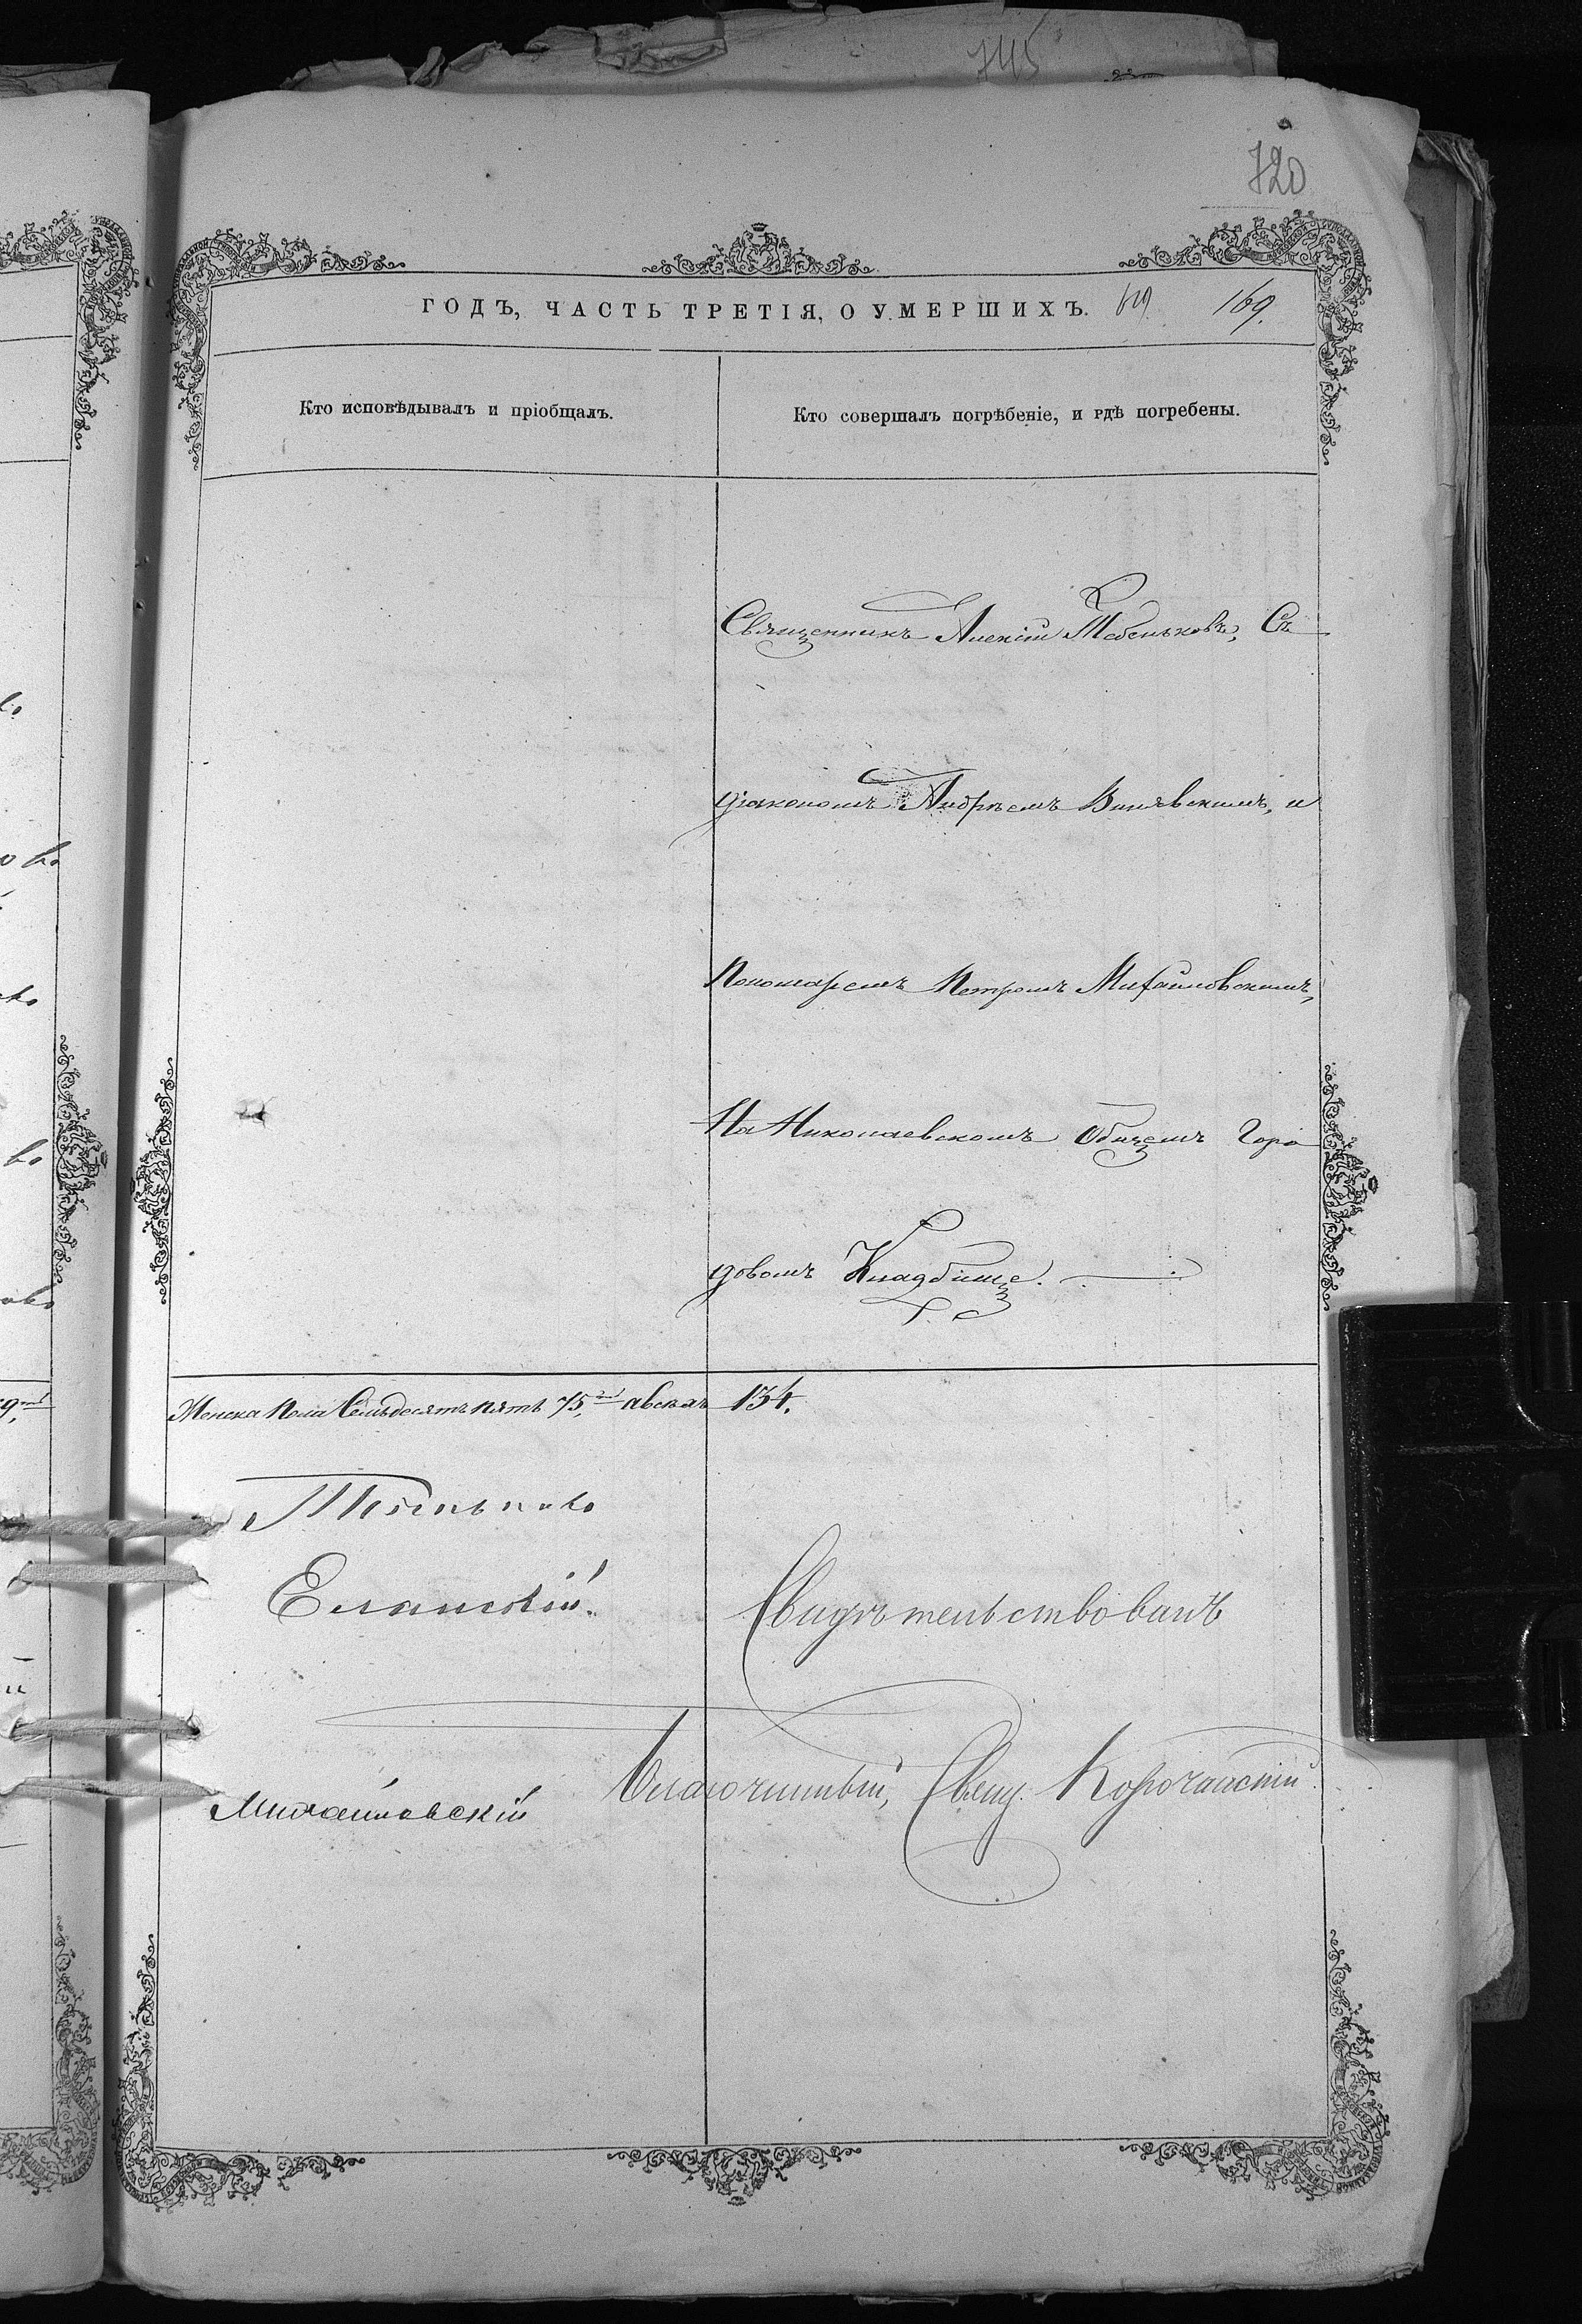 745
720
ГОДЪ, ЧАСТЬ ТРЕТІЯ, О УМЕРШИХЪ. 169.
Кто исповѣдывалъ и пріобщалъ.
Кто совершалъ погрѣбеніе, и гдѣ погребены.
Священникъ Алексій Тебеньковъ, Съ
діакономъ Андреемъ
и
Пономаремъ Петромъ Михайловскимъ,
На Николаевскомъ Общемъ Горо
довомъ Кладбище.
Женска Пола Семьдесятъ пять 75, а всехъ 134.
Еланскій.
Свидѣтельствовалъ
Благочинный, Свящ. Корочанскій
Михайловскій